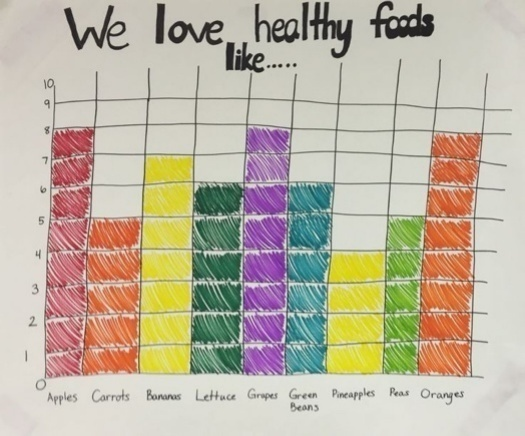 We love healthy foods
like.....
10
9
8
7
6
5
4
3
2
1
0
Apples Carrots Bananas Lettuce Grapes Green Beans Pineapples Peas Oranges